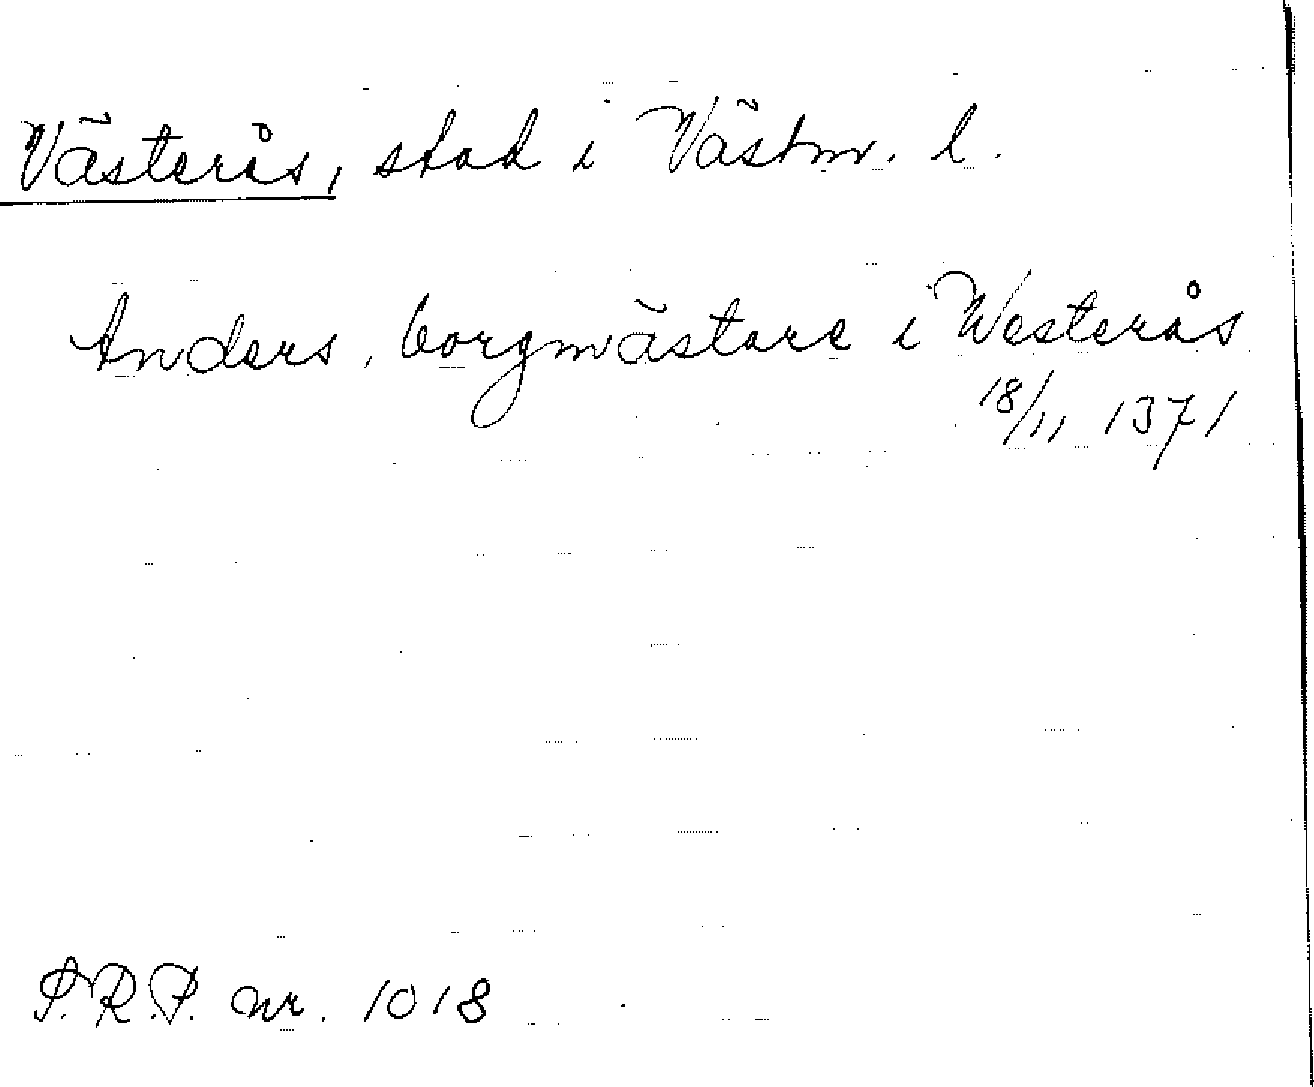 Västerås, stad i Västm. l.
Anders, borgmästare i Westerås
18/11 1371
S.R.P. nr. 1018